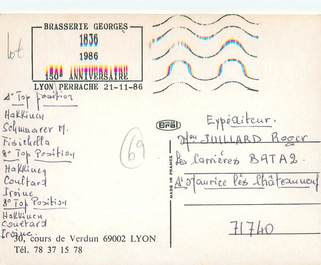 lot
BRASSERIE GEORGES
1836
1986
150e ANNIVERSAIRE
LYON PERRACHE 21-11-86
Top position
Hakkinen
Schumarer M.
Fisichella
Top Position
Hakkinen
Coultard
Irvine
Top Position
Hakkinen
Coultard
Irvine
30, cours de Verdun 69002 LYON
Tél. 78 37 15 78
69
MADE IN FRANCE
Expéditeur.
JUILLARD Roger
les Carrières BATA2
St Maurice lès Châteauneuf
71740